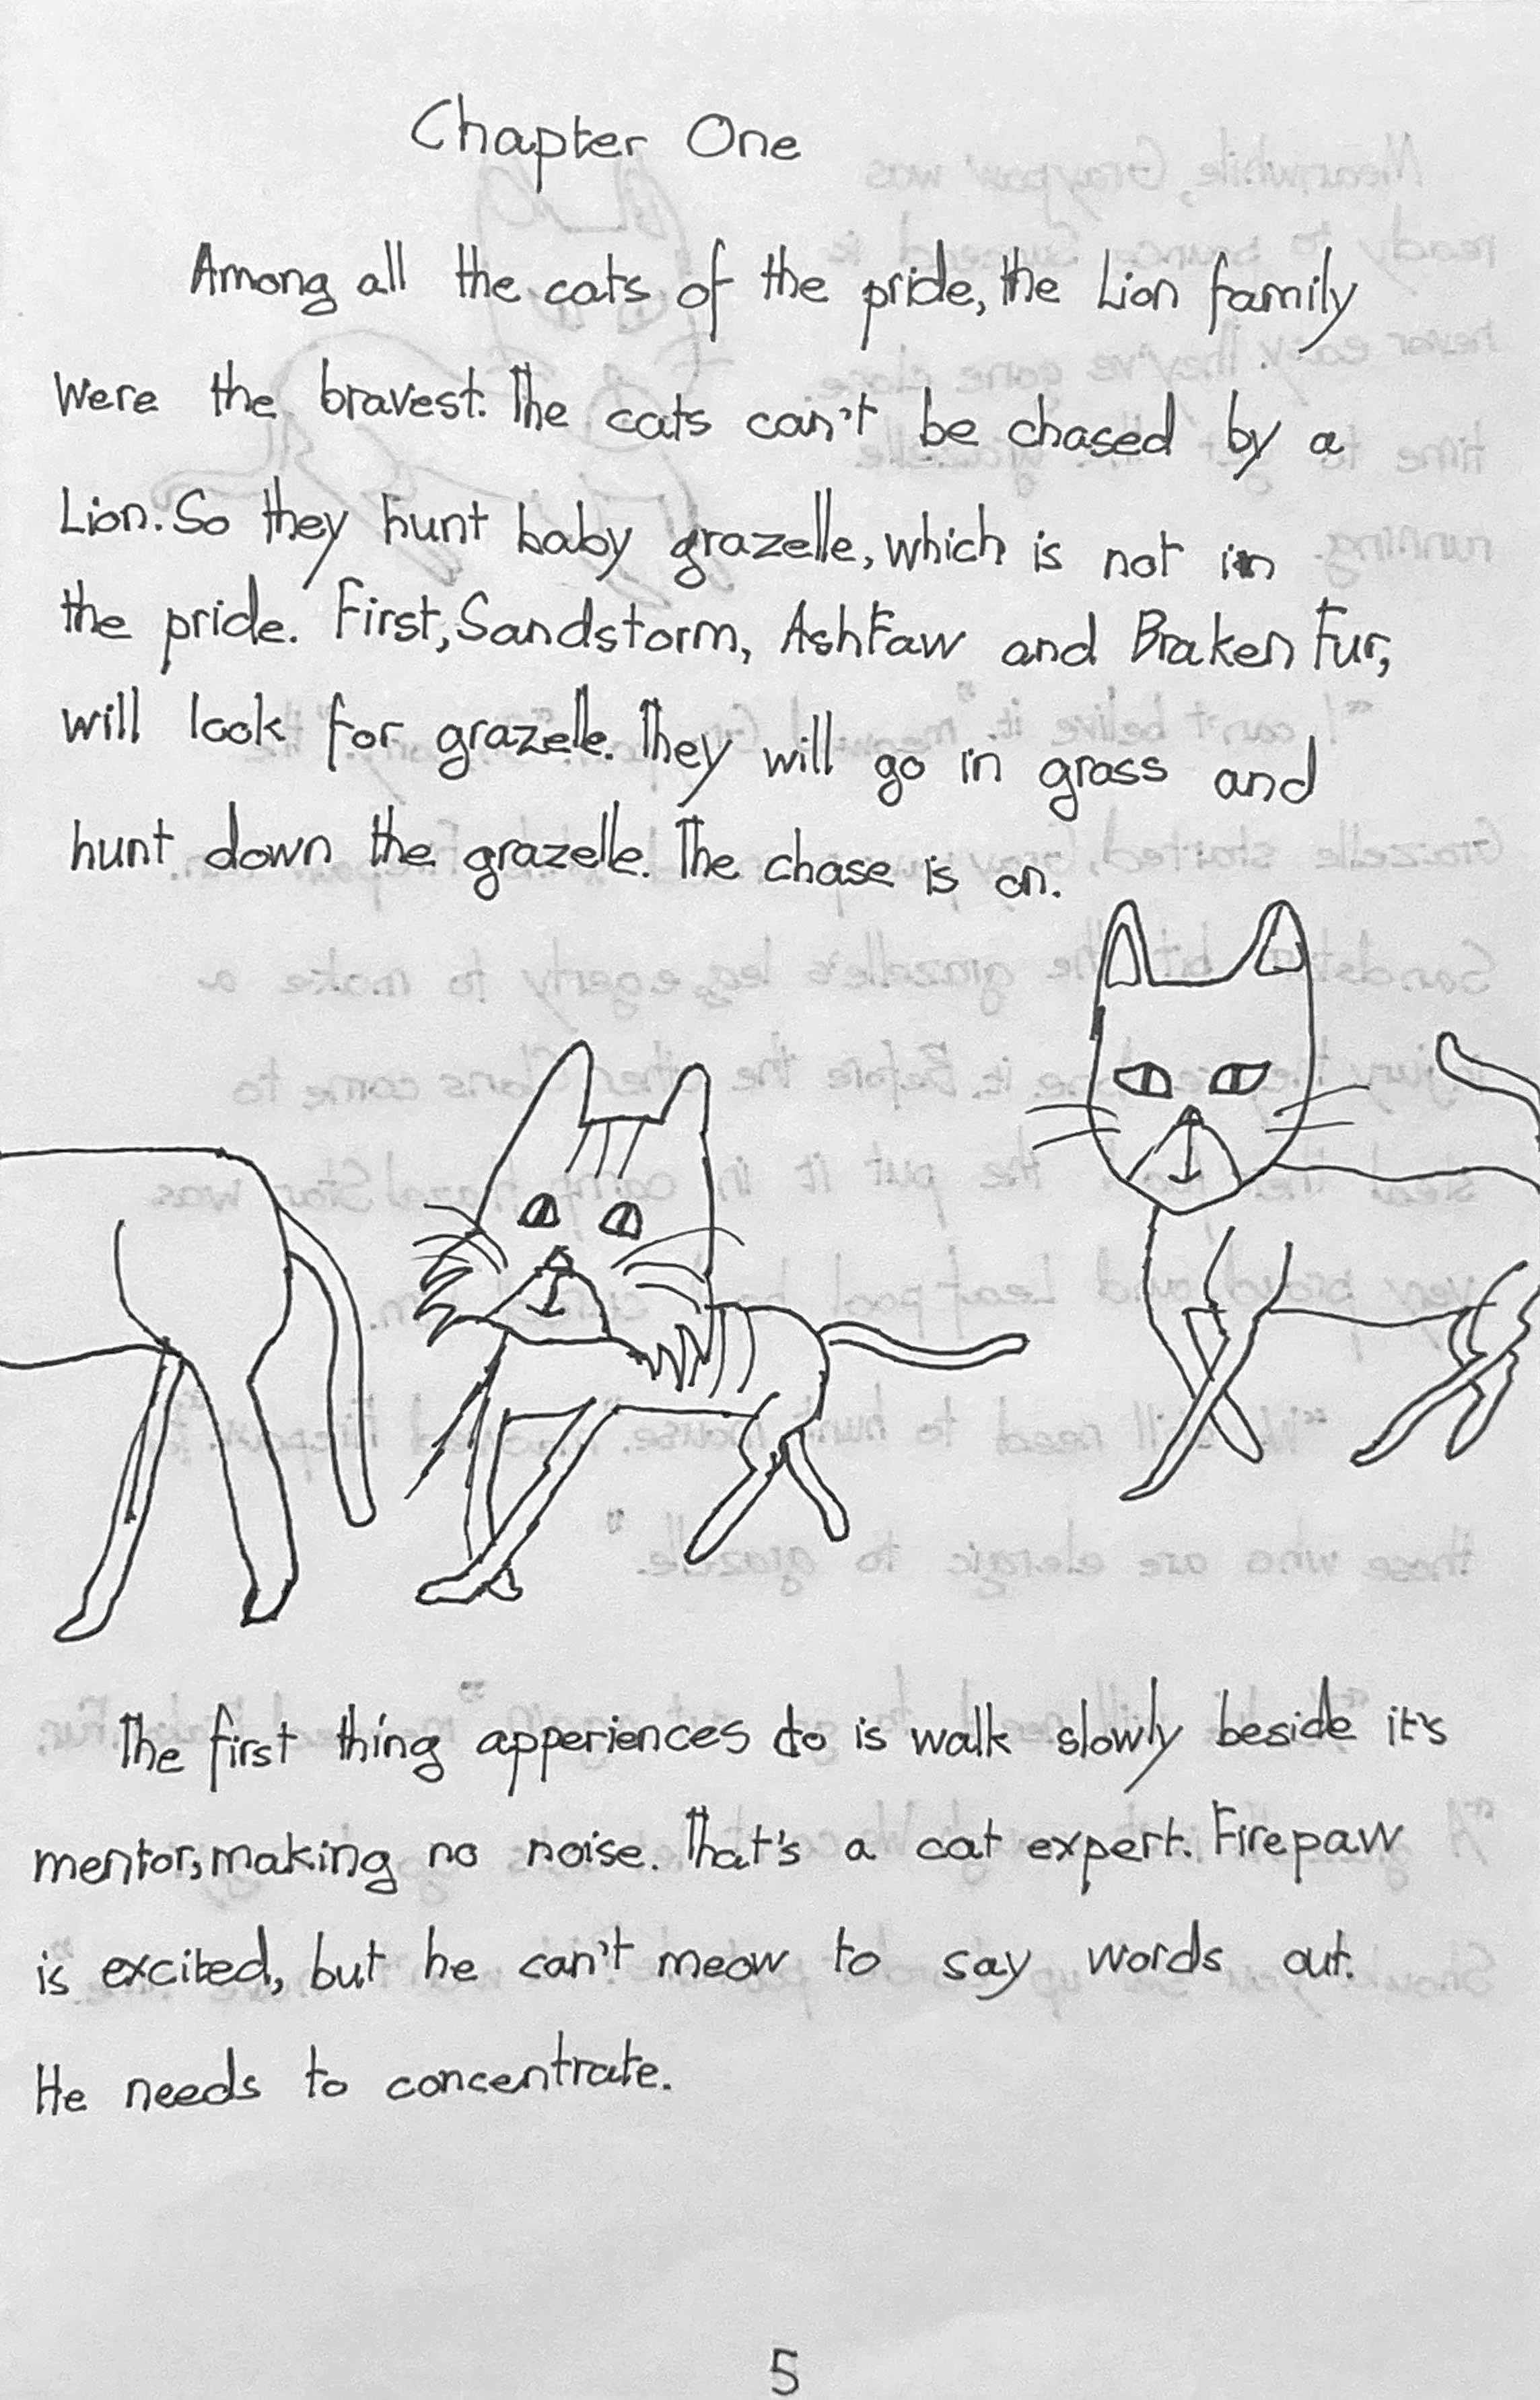 Chapter One
Among all the cats of the pride, the Lion family
were the bravest. The cats can't be chased by a
Lion. So they hunt baby grazelle, which is not in
the pride. First, Sandstorm, AshFaw and Braken Fur,
will look for grazelle. They will go in grass and
hunt down the grazelle. The chase is on.
The first thing apperiences do is walk slowly beside it's
mentor, making no noise. That's a cat expert. Firepaw
is excited, but he can't meow to say words out.
He needs to concentrate.
5